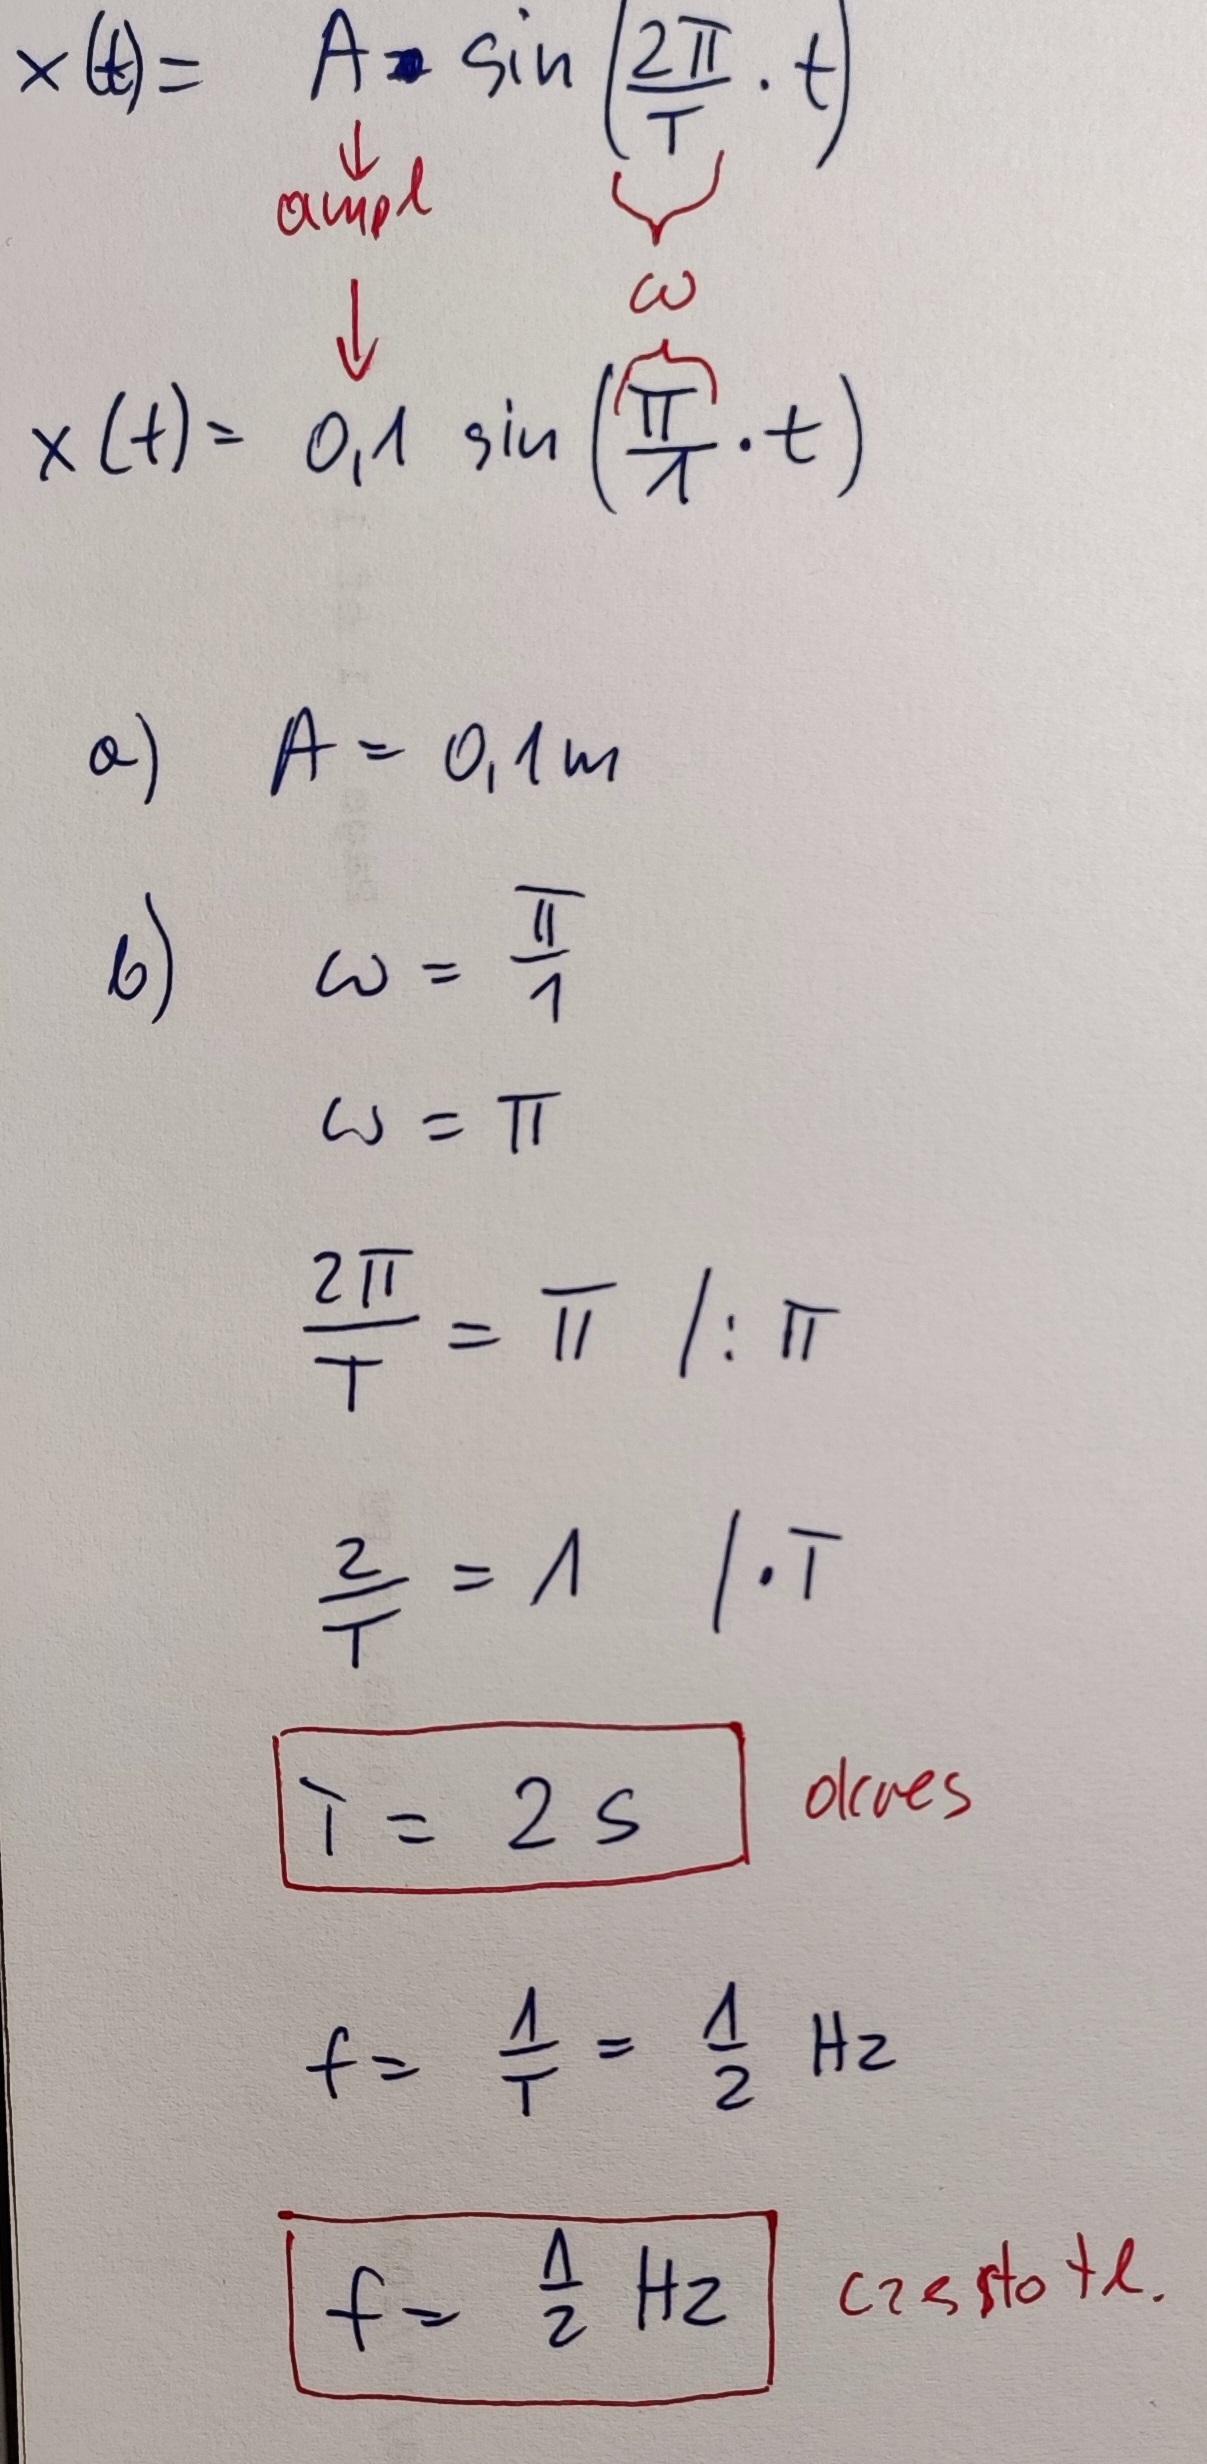 x(t) = A · sin(2π/T · t)
↓
ampl
↓
ω
x(t) = 0,1 sin(π/1 · t)
a) A = 0,1 m
b) ω = π/1
ω = π
2π/T = π /: π
2/T = 1 / · T
T = 2 s okres
f = 1/T = 1/2 Hz
f = 1/2 Hz częstotl.